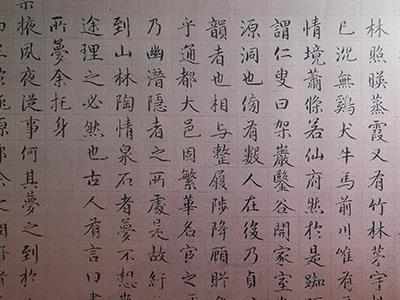 林照暎蒸霞又有竹林茅宇
已沈無鷄犬牛馬前川唯有
情境蕭條若仙府然於是踟
謂仁叟曰架巖鑿谷開家室
源洞也傍有數人在後乃貞
韻者也相与整履陟降顧眄
乎通都大邑固繁華名官之
乃幽潛隱者之所處是故紆
到山林陶情泉石者夢不想
途理之必然也古人有言曰
所夢余托身
掖夙夜從事何其夢之到於
源耶余之相